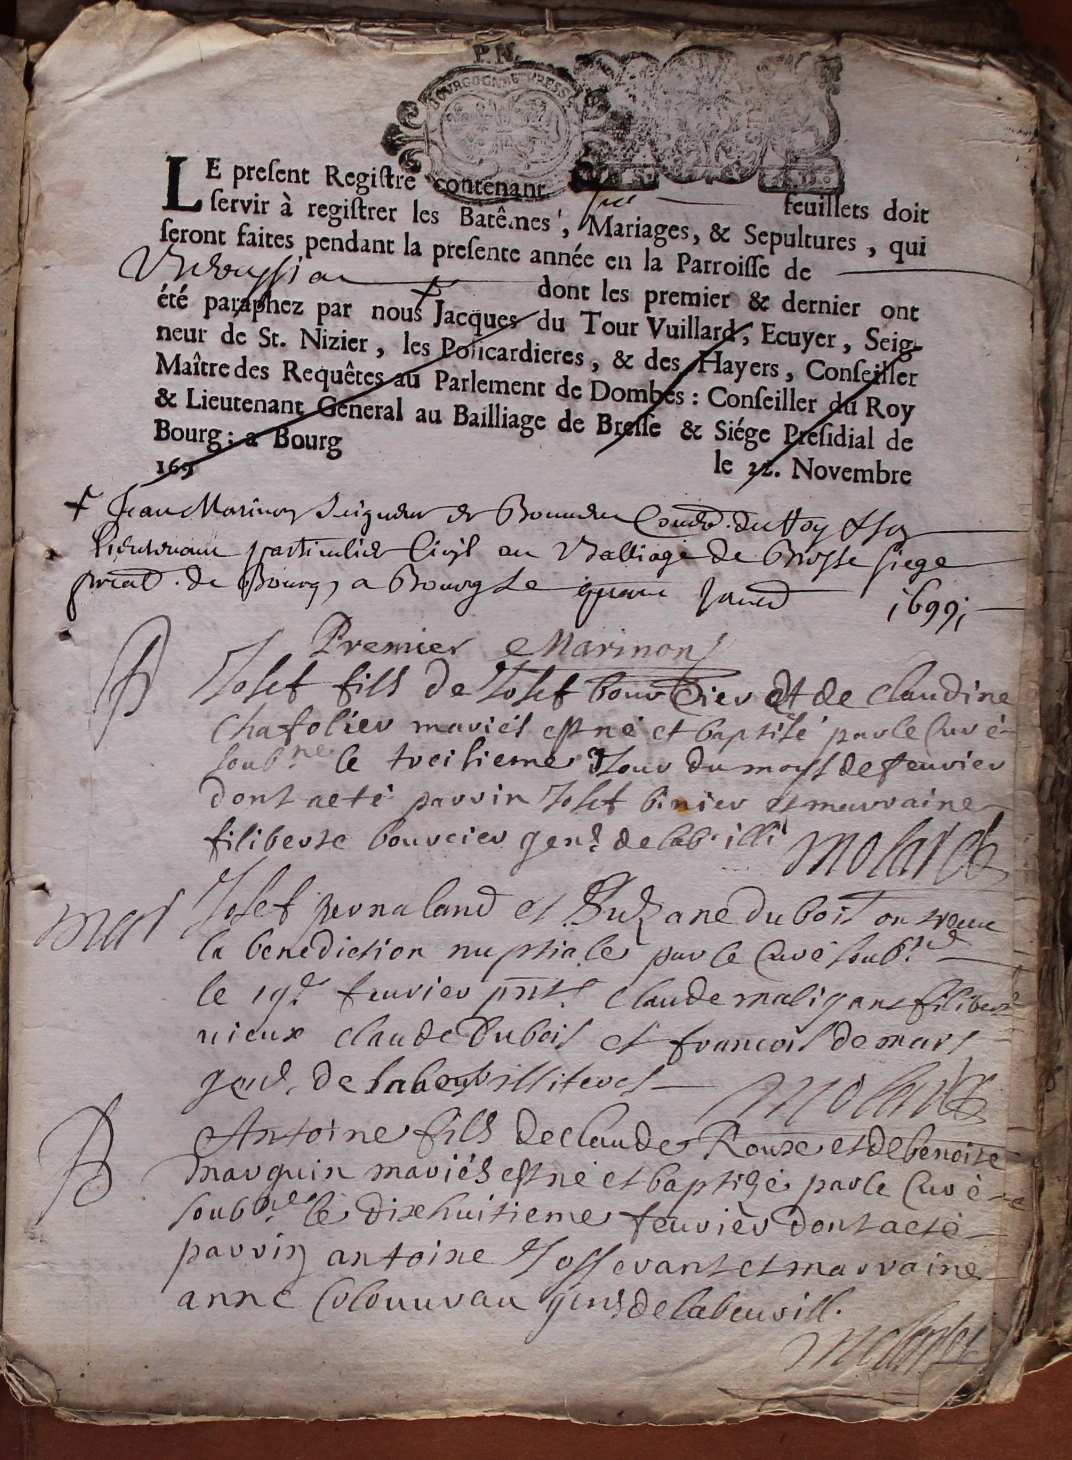 P.N.
BOURGOGNE ET BRESSE
LE preſent Regiſtre contenant six feuillets doit
ſervir à regiſtrer les Batêmes, Mariages, & Sepultures, qui
ſeront faites pendant la preſente année en la Parroiſſe de
dont les premier & dernier ont
été paraphez par nous Jacques du Tour Vuillard, Ecuyer, Seig-
neur de St. Nizier, les Policardieres, & des Hayers, Conſeiller
Maître des Requêtes au Parlement de Dombes : Conſeiller du Roy
& Lieutenant General au Bailliage de Breſſe & Siége Preſidial de
Bourg : a Bourg le 22. Novembre
169
Jean Marinon Seigneur de du Roy
Lieutenant particulier Civil au Balliage de Bresse siege
de Bourg, a Bourg Le Janvd 1699
Premier Marinon
B
Josef fils de Josef bourcier et de claudine
chafolier mariés est né et baptisé par le Curé
soubne le treisieme Jour du moys de feuvier
dont a eté parrin Josef binier et marraine
filiberte bourcier gens de lab. illi Molard
mar
Josef et Suzane du bois on receu
la benediction nuptiale par le Curé soubd
le 19e feuvier pnts claude maligant filibert
vieux claude Dubois et francois de mars
gens de labeur illiteres Molard
B
Antoine fils de claude Roux et de benoite
marguin mariés est né et baptizé par le Curé
soubne le dixhuitieme feuvier dont a eté
parrin antoine Josserant et marraine
anne gens de labeur ill.
Molard